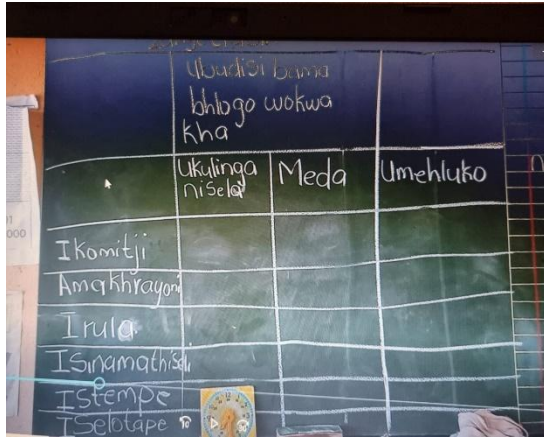 Ubudisi bama
bhlogo wokwa
kha
Ukulinga
nisela
Meda
Umehluko
Ikomitji
Amakhrayoni
Irula
Isinamathiseli
Istempe
Iselotape